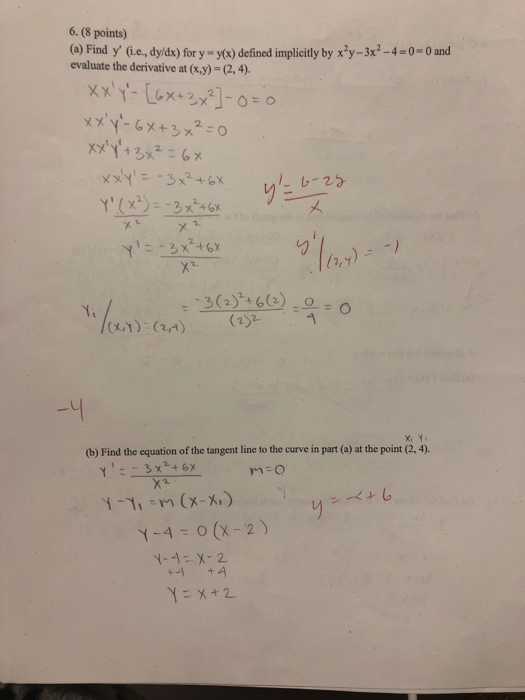 6. (8 points)
(a) Find y' (i.e., dy/dx) for y = y(x) defined implicitly by x²y – 3x² – 4 = 0 = 0 and
evaluate the derivative at (x,y) = (2, 4).
xx'y' - [6x+3x²] - 0 = 0
xx'y' - 6x + 3x² = 0
xx'y' + 3x² = 6x
xx'y' = -3x² + 6x
y' = 6-2y / x
y'(x²) / x² = -3x² + 6x / x²
y' = -3x² + 6x / x²
y' |(2,4) = -1
Y₁ /(x,y) = (2,4) = -3(2)² + 6(2) / (2)² = 0/4 = 0
-4
x₁ y₁
(b) Find the equation of the tangent line to the curve in part (a) at the point (2, 4).
y' = -3x² + 6x / x² m=0
y - y₁ = m(x - x₁)
y = -x+6
y - 4 = 0(x - 2)
y - 4 = x - 2
+4 +4
y = x + 2